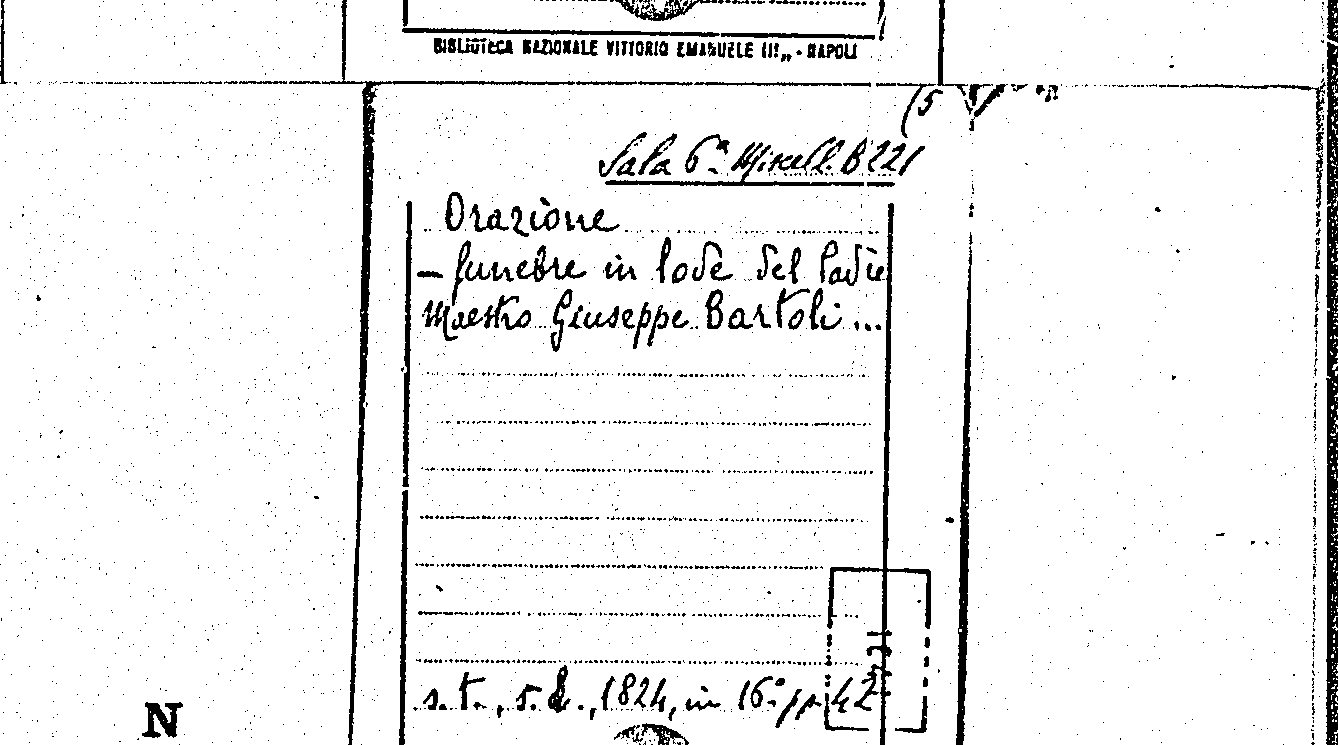 BIBLIOTECA NAZIONALE VITTORIO EMANUELE III„ - NAPOLI
(5
Sala 6ª Miscell. B 221
Orazione
– funebre in lode del Padre
Maestro Giuseppe Bartoli ...
s. t., s. l., 1824, in 16° pp. 42
N